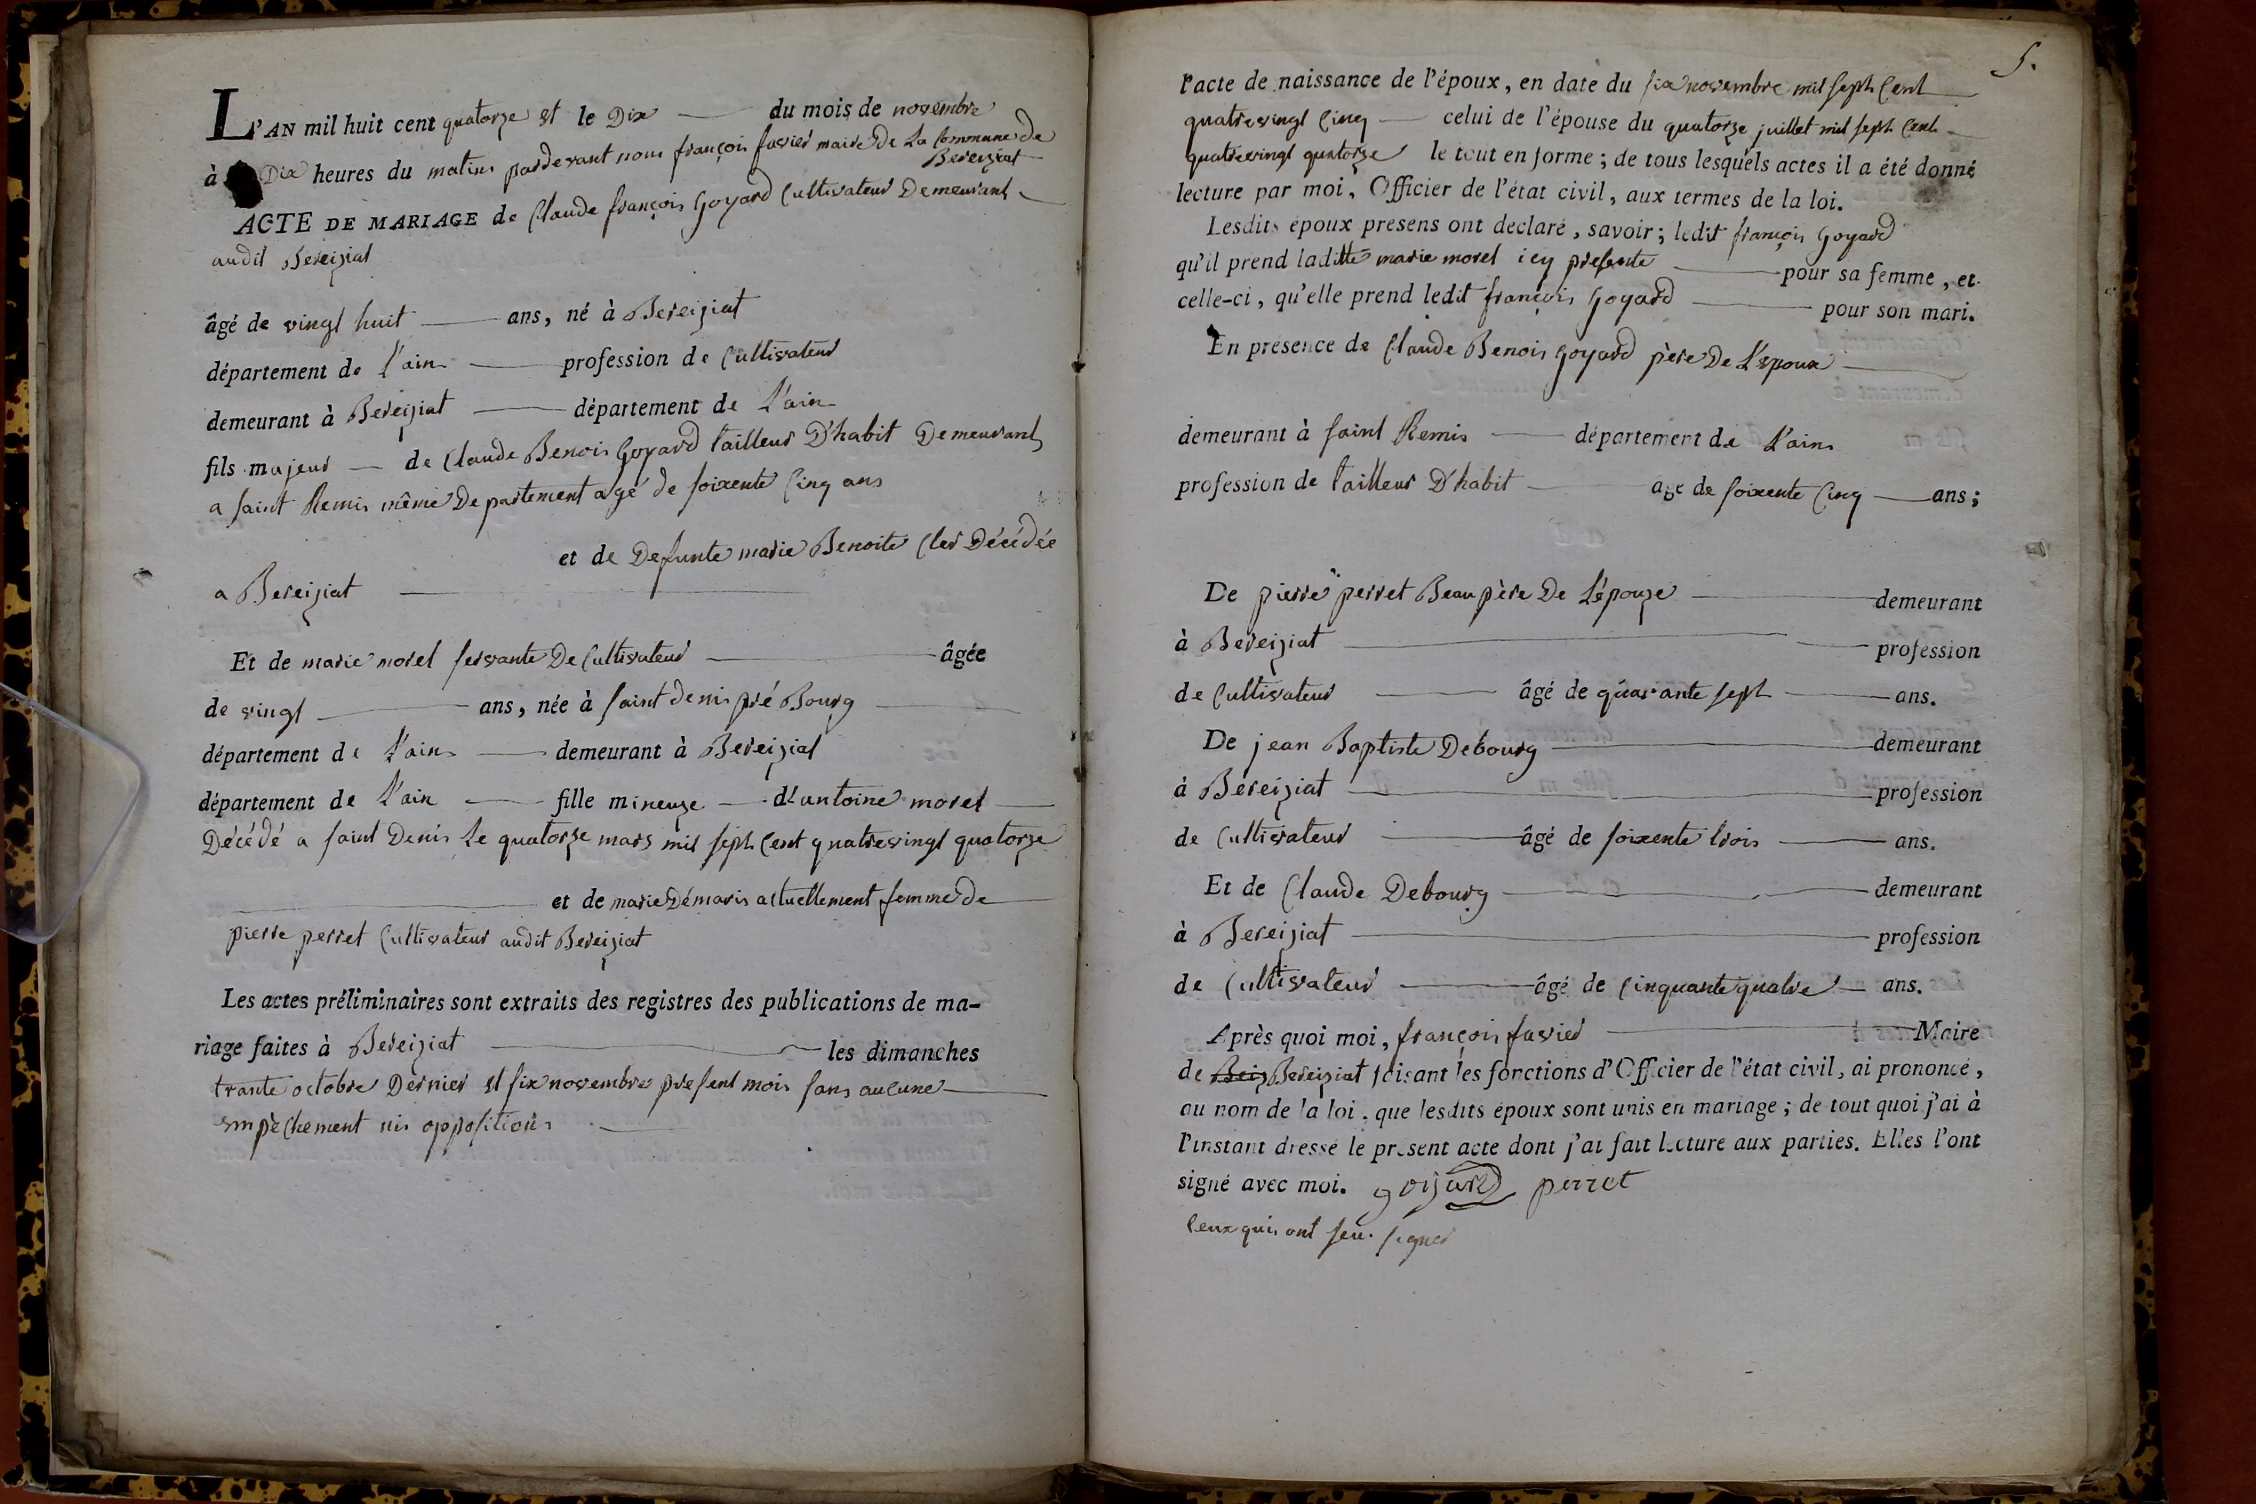 L'AN mil huit cent quatorze et le Dix du mois de novembre
à Dix heures du matin pardevant nous françois favier maire De La Commune de
Bereiziat
ACTE DE MARIAGE de Claude françois Goyard Cultivateur Demeurant
audit Bereiziat
âgé de vingt huit ans, né à Bereiziat
département de l'ain profession de Cultivateur
demeurant à Bereiziat département de L'ain
fils majeur de Claude Benois Goyard tailleur D'habit Demeurant
a saint Remis même Departement agé de soixente Cinq ans
et de Defunte marie Benoite Cler Décédée
a Bereiziat
Et de marie morel servante De Cultivateur âgée
de vingt ans, née à saint denis pré Bourg
département de L'ain demeurant à Bereiziat
département de L'ain fille mineuze d'antoine morel
Décédé a saint Denis Le quatorze mars mil sept Cent quatrevingt quatorze
et de marie Démaris actuellement femme de
pierre perret Cultivateur audit Bereiziat
Les actes préliminaires sont extraits des registres des publications de ma-
riage faites à Bereiziat les dimanches
trante octobre Dernier et six novembre present mois sans aucune
empêchement nis opposition
5.
l'acte de naissance de l'époux, en date du six novembre mil sept Cent
quatrevingt Cinq celui de l'épouse du quatorze juillet mil sept Cent
quatrevingt quatorze le tout en forme; de tous lesquels actes il a été donné
lecture par moi, Officier de l'état civil, aux termes de la loi.
Lesdits époux présens ont déclaré, savoir; ledit françois Goyard
qu'il prend laditte marie morel icy presente pour sa femme, et
celle-ci, qu'elle prend ledit françois Goyard pour son mari.
En présence de Claude Benois Goyard père De L'epoux
demeurant à saint Remis département de L'ain
profession de tailleur D'habit âgé de soixente Cinq ans;
De pierre perret Beau père De L'épouze demeurant
à Bereiziat profession
de Cultivateur âgé de quarante sept ans.
De jean Baptiste Debourg demeurant
à Bereiziat profession
de Cultivateur âgé de soixente trois ans.
Et de Claude Debourg demeurant
à Bereiziat profession
de Cultivateur âgé de Cinquante quatre ans.
Après quoi moi, françois favier Maire
de Beiz Bereiziat faisant les fonctions d'Officier de l'état civil, ai prononcé,
au nom de la loi, que lesdits époux sont unis en mariage; de tout quoi j'ai à
l'instant dressé le présent acte dont j'ai fait lecture aux parties. Elles l'ont
signé avec moi. goijard perret
Ceux quis ont seu signer